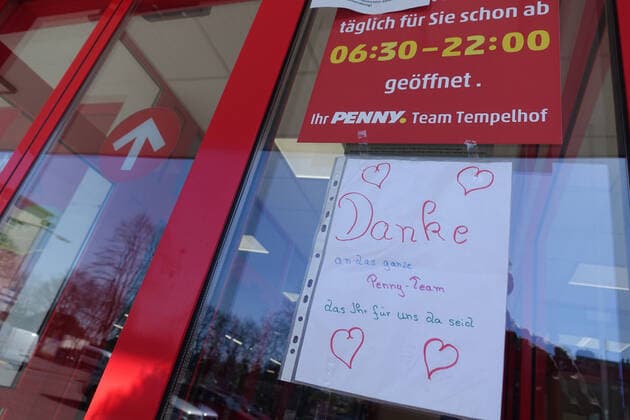 täglich für Sie schon ab
06:30 – 22:00
geöffnet.
Ihr PENNY. Team Tempelhof
Danke
an das ganze
Penny-Team
das Ihr für uns da seid